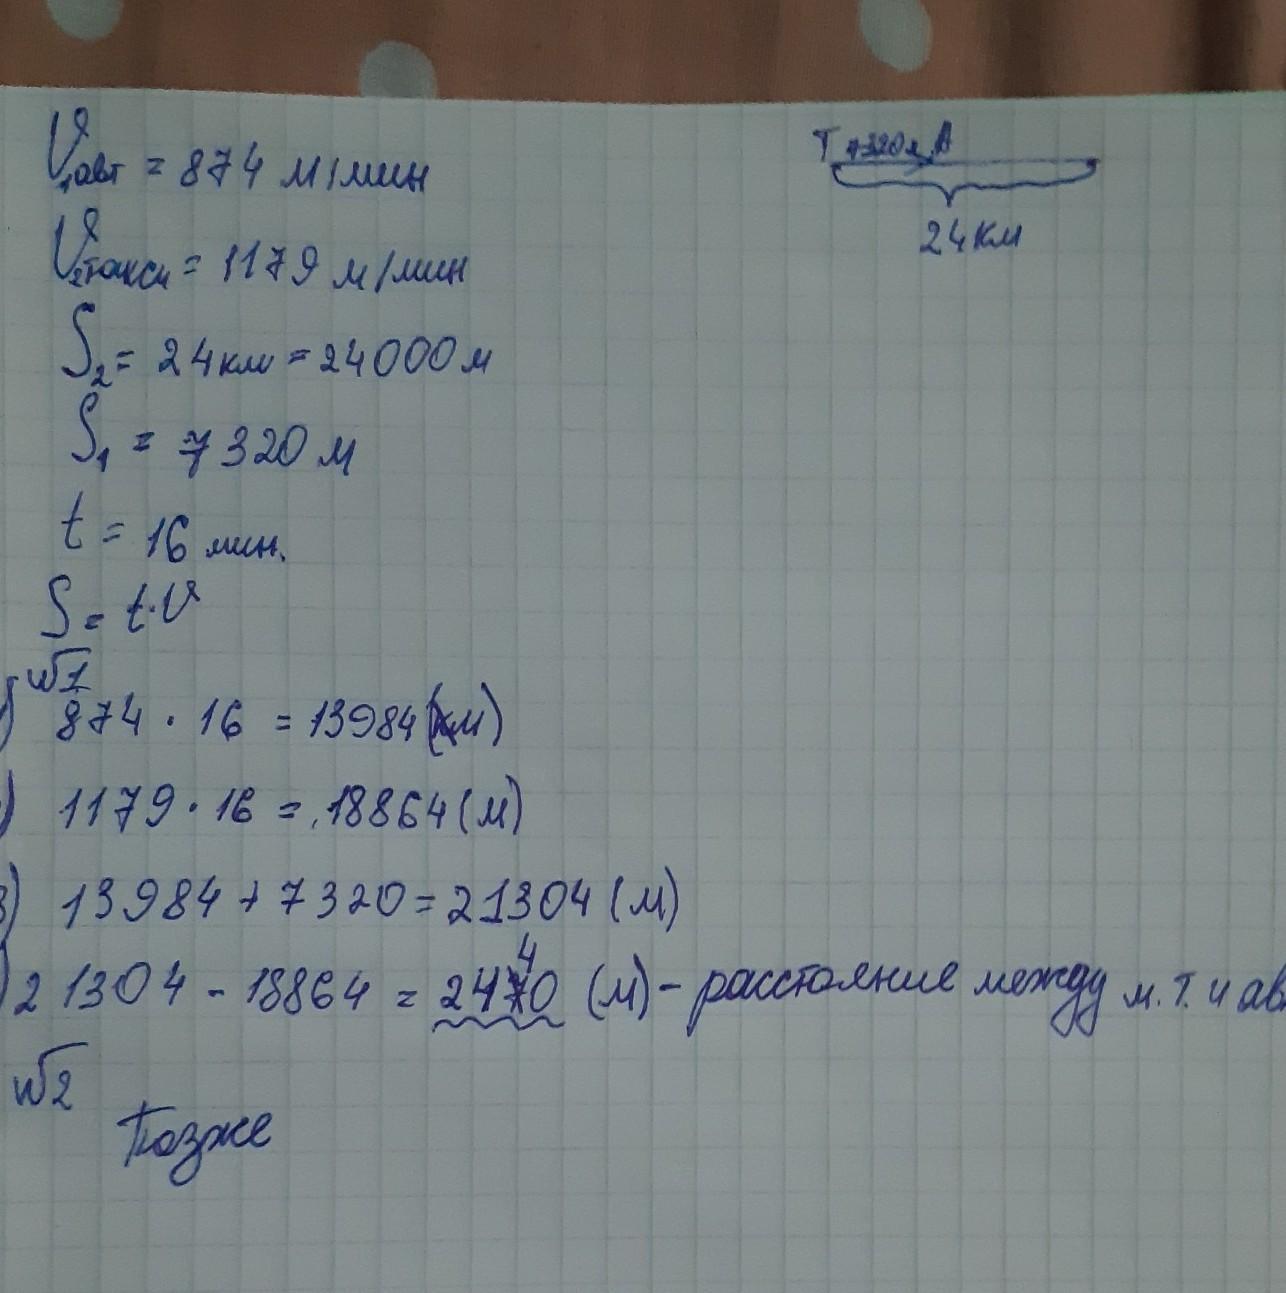 V₁авт = 874 м/мин
T 7320м A
24км
V₂такси = 1179 м/мин
S₂ = 24км = 24000м
S₁ = 7320м
t = 16 мин.
S = t·V
№1
874 · 16 = 13984(км)
) 1179 · 16 = 18864(м)
3) 13984 + 7320 = 21304 (м)
4
) 21304 - 18864 = 2470 (м) - расстояние между м.т. и ав
№2
Позже